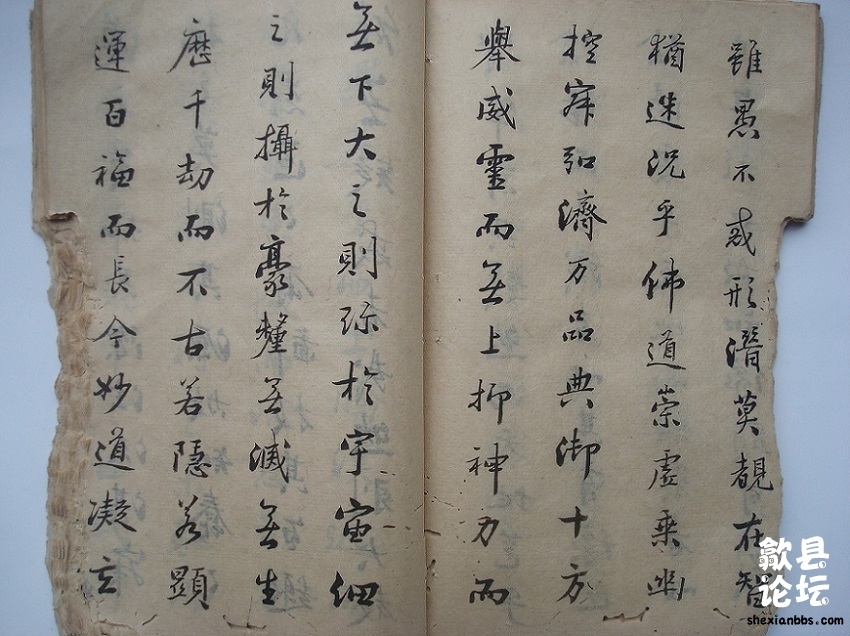 雖愚不惑形潛莫覩在智
猶迷況乎佛道崇虛乘幽
控寂弘濟万品典御十方
舉威靈而無上抑神力而
無下大之則弥於宇宙細
之則攝於豪釐無滅無生
歷千劫而不古若隱若顯
運百福而長今妙道凝玄
歙县
论坛
shexianbbs.com